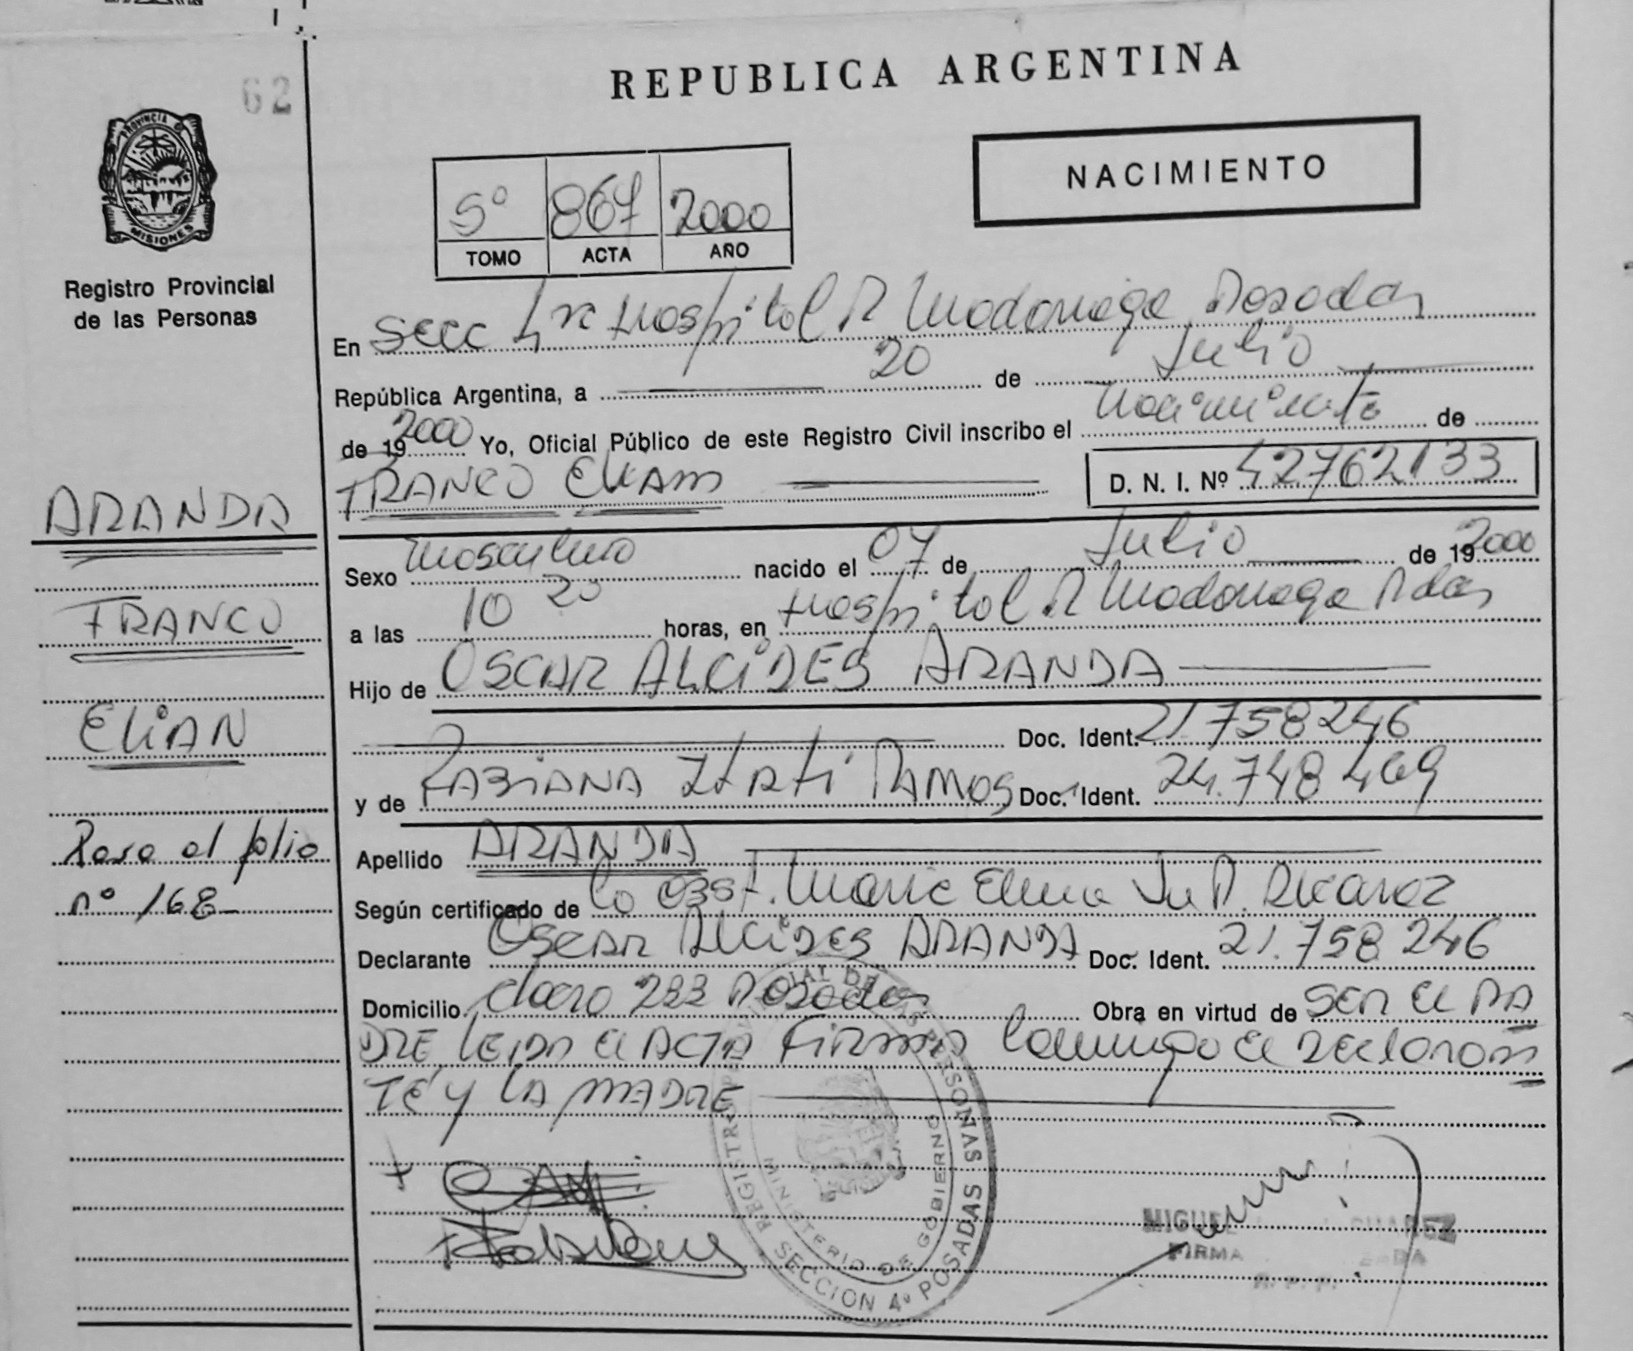 62
REPUBLICA ARGENTINA
NACIMIENTO
PROVINCIA DE
MISIONES
Registro Provincial
de las Personas
5º 867 2000
TOMO ACTA AÑO
En Secc 4ta Hospital R Madariaga Posadas
República Argentina, a 20 de Julio
de 19 2000 Yo, Oficial Público de este Registro Civil inscribo el Nacimiento de
FRANCO ELIAN D. N. I. Nº 42762133
ARANDA
FRANCO
ELIAN
Pasa al folio
nº 168
Sexo Masculino nacido el 07 de Julio de 19 2000
a las 10 20 horas, en Hospital R Madariaga Pdas
Hijo de OSCAR ALCIDES ARANDA
Doc. Ident. 21.758246
y de FABIANA ITATI RAMOS Doc. Ident. 24.748 469
Apellido ARANDA
Según certificado de la OBST. Maria Elena
Declarante OSCAR ALCIDES ARANDA Doc. Ident. 21.758 246
Domicilio 233 Posadas Obra en virtud de SER EL PA
DRE LEIDA EL ACTA FIRMA Conmigo El Declaran
TE Y LA MADRE
REGISTRO PROVINCIAL DE LAS PERSONAS
MINISTERIO DE GOBIERNO
SECCION 4º POSADAS
MIGUEL
FIRMA